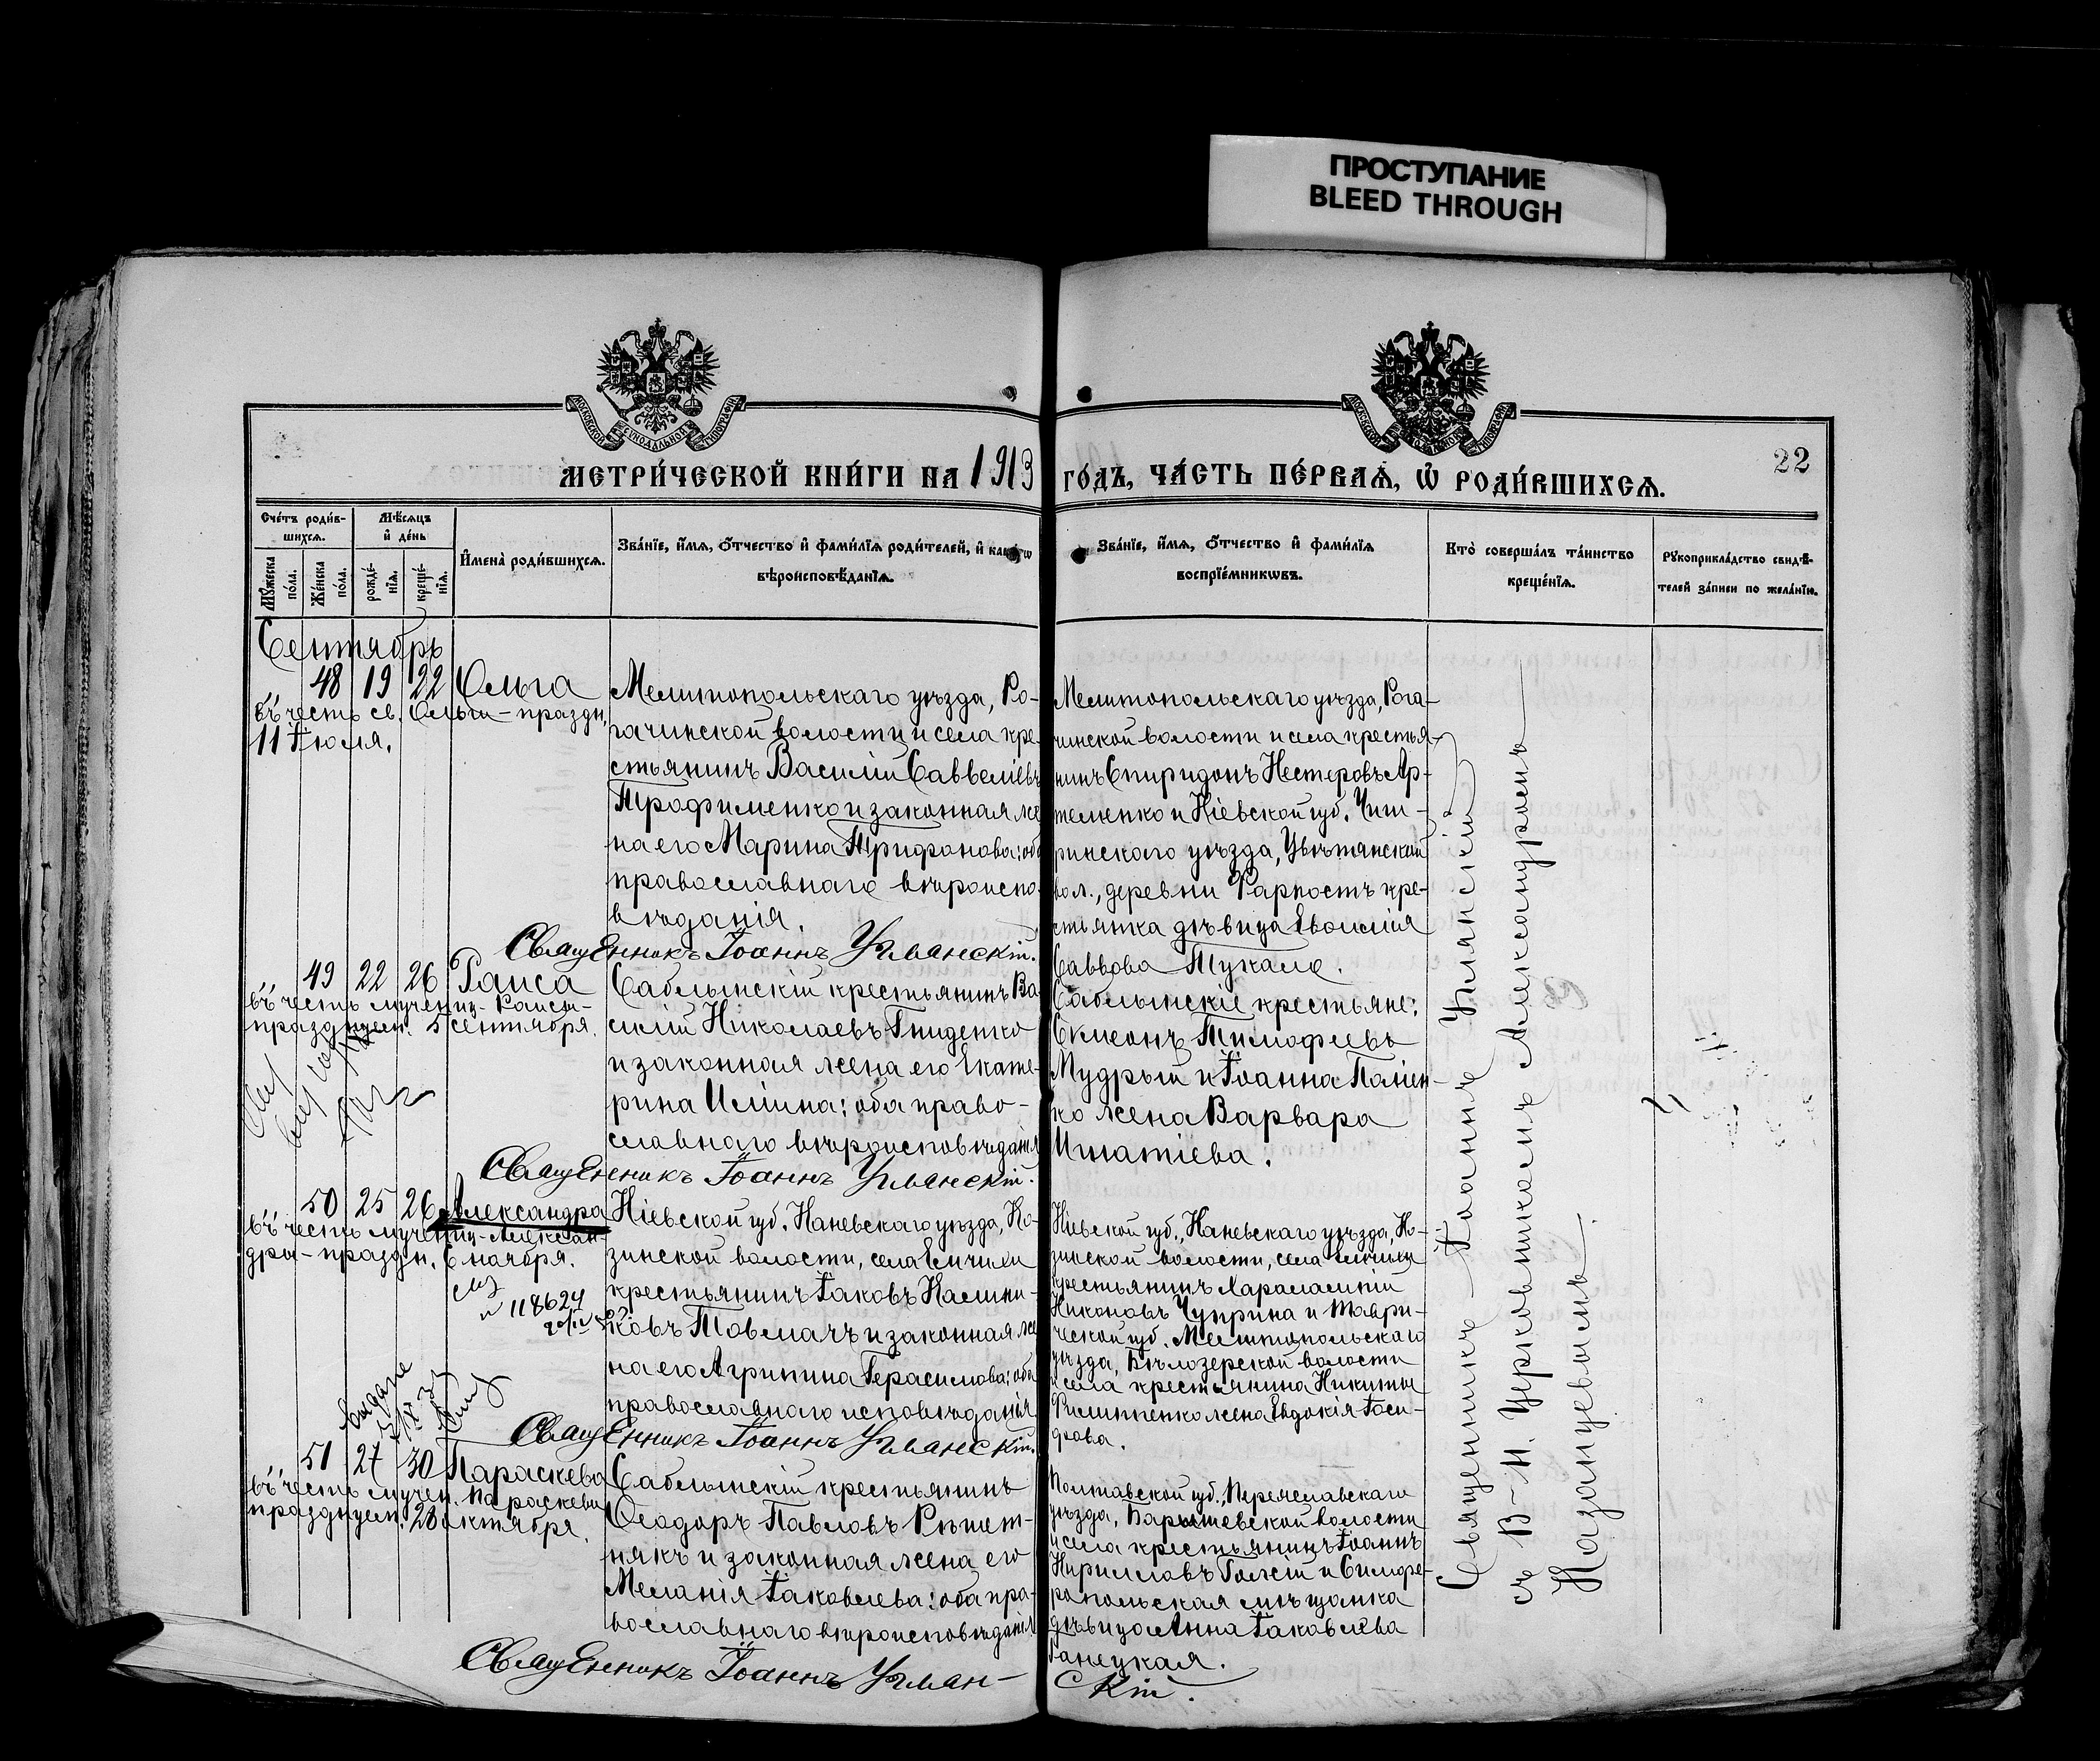 ПРОСТУПАНИЕ
BLEED THROUGH
МОСКОВСКОЙ СУНОДАЛЬНОЙ ТИПОГРАФІИ
МОСКОВСКОЙ СУНОДАЛЬНОЙ ТИПОГРАФІИ
22
МЕТРИ́ЧЕСКОЙ КНИ́ГИ НА 1913 ГО́ДЪ, ЧА́СТЬ ПЕ́РВАѦ, Ѡ҆ РОДИ́ВШИХСѦ.
Сче́тъ роди́в-
шихсѧ.
Мѣ́сѧцъ
и҆ де́нь
Мꙋ́жеска
по́ла.
Же́нска
по́ла.
рожде́-
нїѧ.
креще́-
нїѧ.
И҆мена̀ роди́вшихсѧ.
Зва́нїе, и҆́мѧ, ѻ҆́тчество и҆ фами́лїѧ роди́телей, и҆ како́гѡ
вѣроисповѣ́данїѧ.
Зва́нїе, и҆́мѧ, ѻ҆́тчество и҆ фами́лїѧ
воспрїе́мникѡвъ.
Кто̀ соверша́лъ та́инство
креще́нїѧ.
Рꙋкоприкла́дство свидѣ́-
телей за́писи по жела́нїю.
Сентябрь
48 19 22 Ольга
въ честь св. Ольги - праздн.
11 Іюля.
Мелитопольскаго уѣзда, Ро-
гачинской волости и села кре-
стьянинъ Василій Саввеліевъ
Трофименко и законная же-
на его Марина Трифонова: оба
православнаго вѣроиспо-
вѣданія.
Священникъ Іоаннъ Углянскій.
Мелитопольскаго уѣзда, Рога-
чинской волости и села крестья-
нинъ Спиридонъ Нестеровъ Ар-
теменко и Кіевской губ. Чиги-
ринскаго уѣзда, Цвѣтянской
вол., деревни кре-
стьянка дѣвица
Саввова Тукало.
49 22 26 Раиса
въ честь мучениц. Раисы-
празднуем. 5 сентября.
Саблынскій крестьянинъ Ва-
силій Николаевъ Гниденко
и законная жена его Екате-
рина Ильина: оба право-
славнаго вѣроисповѣданія
Священникъ Іоаннъ Углянскій.
Саблынскіе крестьяне:
Симеонъ Тимофеевъ
Мудрый и Іоанна
жена Варвара
Игнатіева.
50 25 26 Александра
въ честь мучениц. Алексан-
дры - праздн. 6 ноября.
118624
Кіевской губ. Каневскаго уѣзда, Ко-
зинской волости, села Емчихи
крестьянинъ Іаковъ Калини-
ковъ Товмачъ и законная же-
на его Агрипина Герасимова: оба
православнаго исповѣданія
Священникъ Іоаннъ Углянскій.
Кіевской губ., Каневскаго уѣзда, Ко-
зинской волости, села Емчихи
крестьянинъ Харалампій
Никоновъ Чуприна и Таври-
ческой губ. Мелитопольскаго
уѣзда, Бѣлозерской волости
и села крестьянина Никиты
жена Евдокія Іоси-
фова.
51 27 30 Параскева
въ честь мучен. Параскевы
празднуем. 28 октября.
Саблынскій крестьянинъ
Ѳеодоръ Павловъ Рѣшет-
някъ и законная жена его
Меланія Іаковлева: оба пра-
вославнаго вѣроисповѣданія
Священникъ Іоаннъ Углян-
скій.
Полтавской губ., Переяславскаго
уѣзда, Барышевской волости
и села крестьянинъ Іоаннъ
Кирилловъ и Симфе-
ропольская мѣщанка
дѣвица Анна Іаковлева
Ганецкая.
Священникъ Іоаннъ Углянскій
съ В-И. Церковникомъ Александромъ
Казанцевымъ